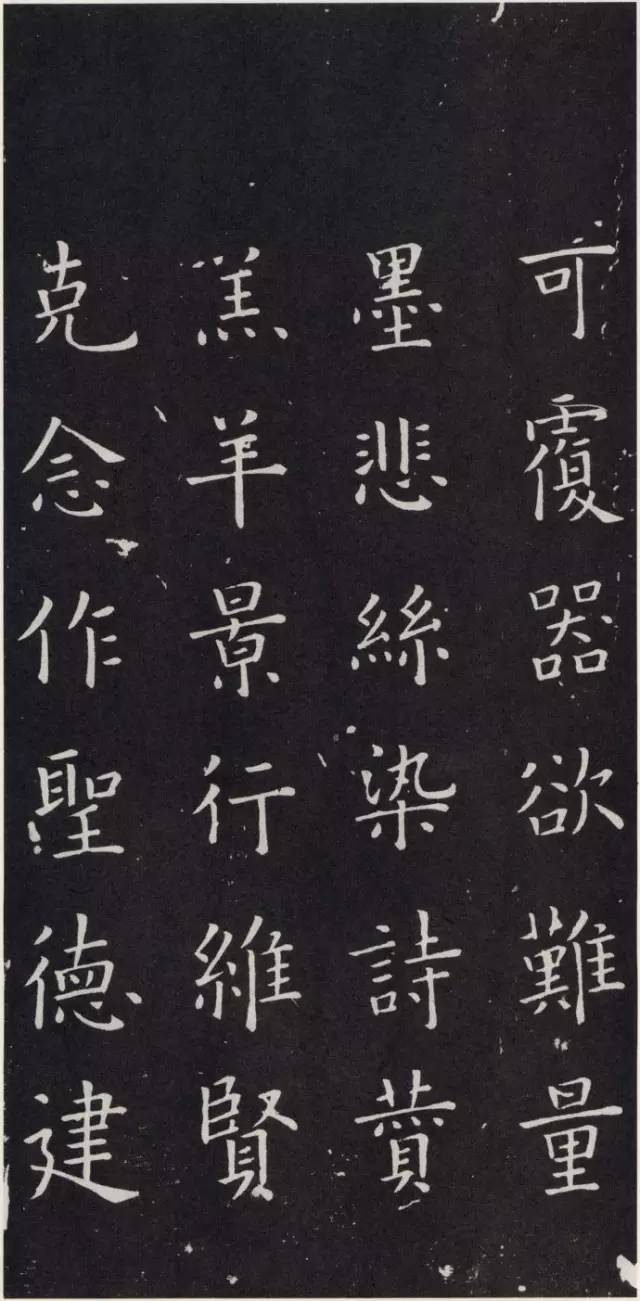 可覆器欲難量
墨悲絲染詩賛
羔羊景行維賢
克念作聖德建